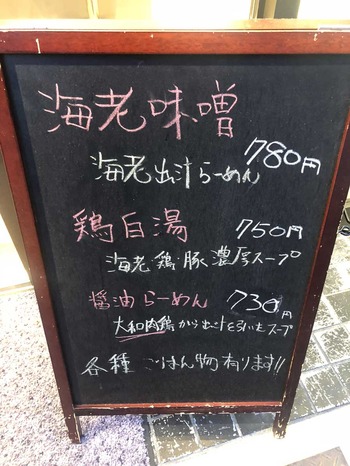 海老味噌
780円
海老出汁らーめん
鶏白湯 750円
海老・鶏・豚 濃厚スープ
醤油らーめん 730円
大和肉鶏から出汁を引いたスープ
各種 ごはん物有ります!!